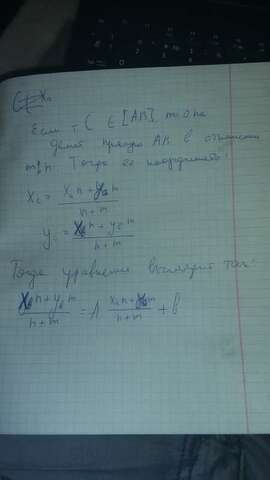 Если т. C ∈ [AB], то она
делит прямую AB в отношении
m/n. Тогда ее координаты:
x_c = (x_a n + y_a m)/(n + m)
y = (x_b n + y_b m)/(n + m)
Тогда уравнение выглядит так:
(x_b n + y_b m)/(n + m) = A (x_a n + y_a m)/(n + m) + B